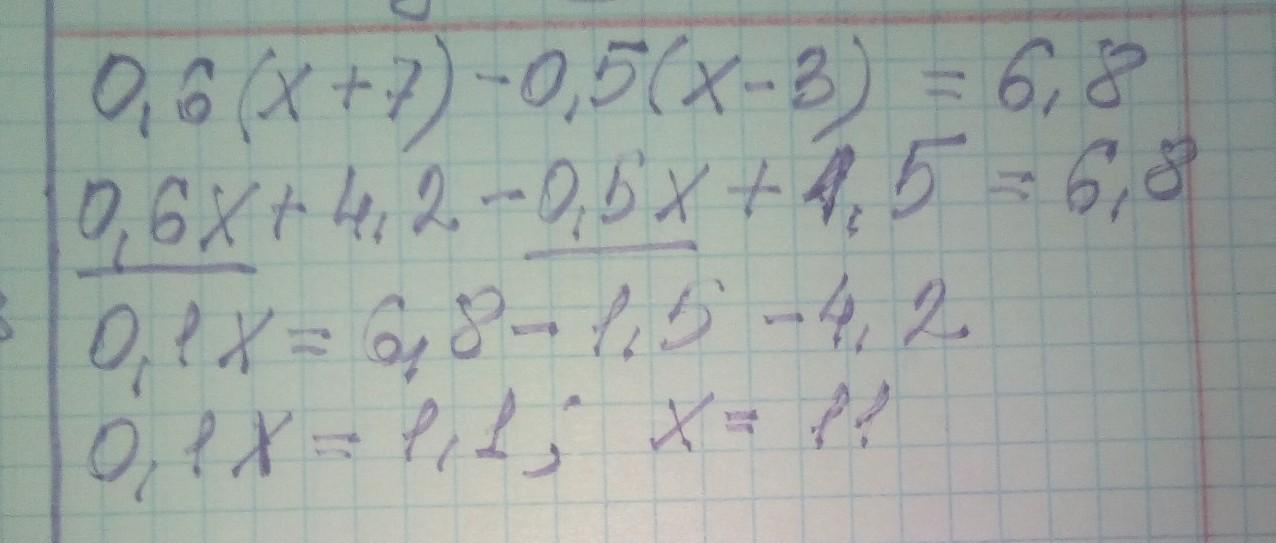 0,6(x+7)-0,5(x-3) = 6,8
0,6x+4,2-0,5x+1,5=6,8
0,1x=6,8-1,5-4,2
0,1x=1,1; x=11